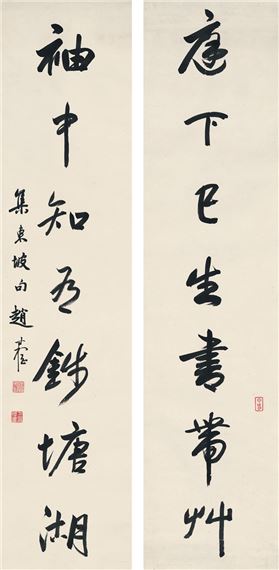 庭下已生書帶艸
袖中知有錢塘湖
集東坡句趙